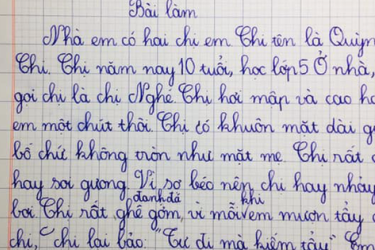 Bài làm
Nhà em có hai chị em Chị tên là Quỳn
Chi. Chị năm nay 10 tuổi, học lớp 5 Ở nhà,
gọi chị là chị Nghé. Chị hơi mập và cao h
em một chút thôi. Chị có khuôn mặt dài g
bố chứ không tròn như mặt mẹ. Chị rất
hay soi gương. Vì sợ béo nên chị hay nhảy
đanh đá khi
bơi. Chị rất ghê gớm, vì mỗi em mượn tẩy
chị, chị lại bảo: "Tự đi mà kiếm tẩy" em